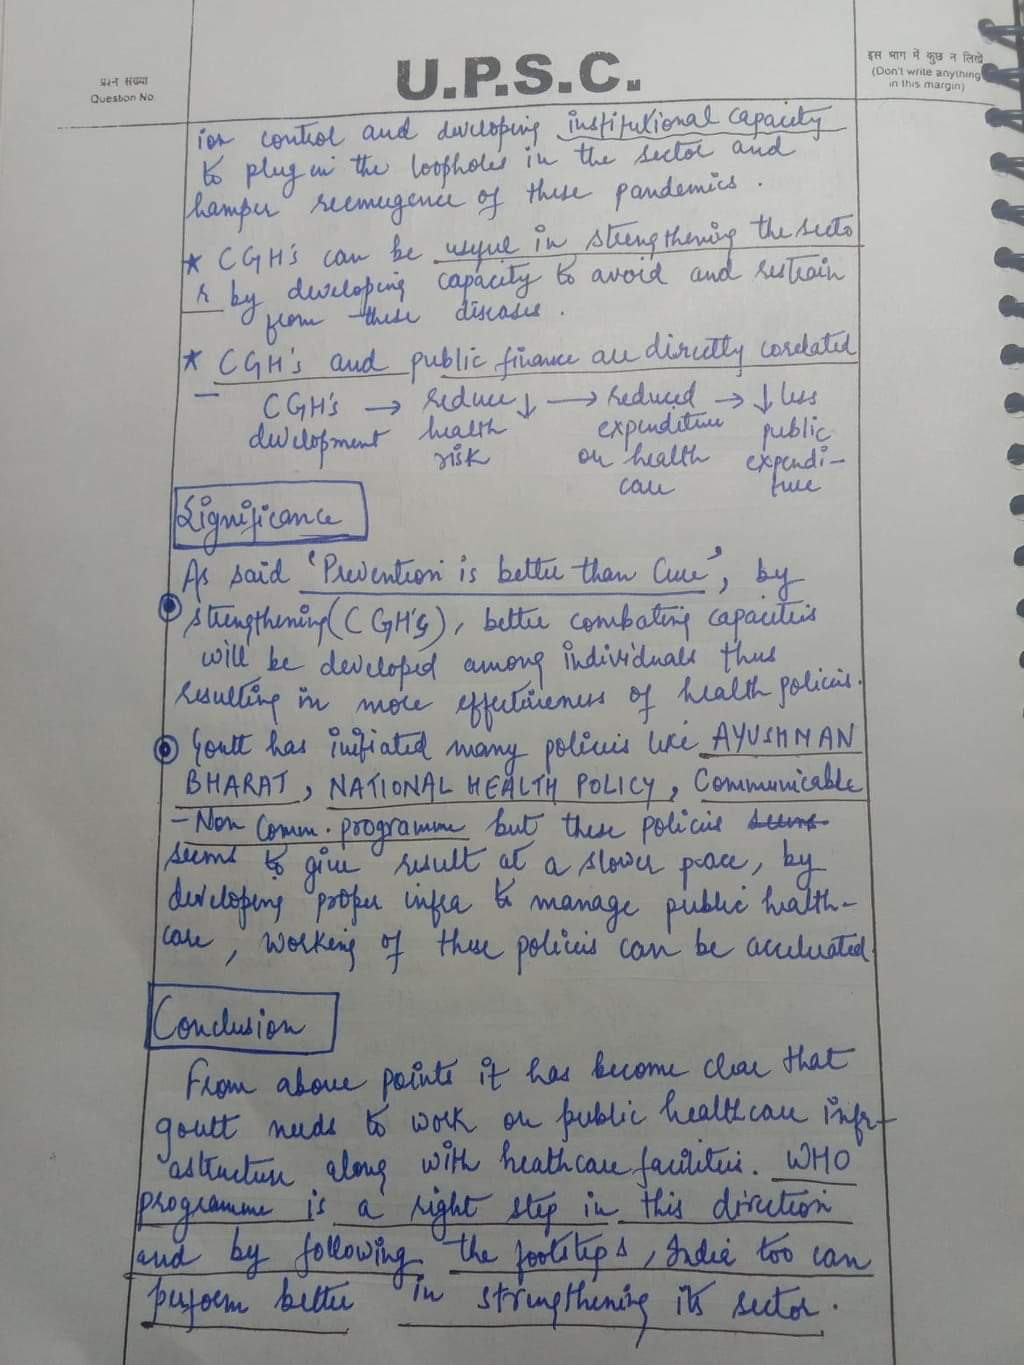 प्रश्न संख्या
Question No.
U.P.S.C.
इस भाग में कुछ न लिखें
(Don't write anything
in this margin)
ion control and developing institutional capacity
to plug in the loopholes in the sector and
hamper reemugence of these pandemics.
* CGH's can be useful in strengthening the secto
r by developing capacity to avoid and restrain
from these diseases.
* CGH's and public finance are directly corelated
CGH's → reduce ↓ → reduced → ↓ less
development health expenditure public
risk on health expendi-
care ture
Significance
As said 'Prevention is better than Cure', by
strengthening (CGH's), better combating capacities
will be developed among individuals thus
resulting in more effectiveness of health policies.
Govtt has initiated many policies like AYUSHMAN
BHARAT, NATIONAL HEALTH POLICY, Communicable
-Non Comm. programme but these policies seems
seems to give result at a slower pace, by
developing proper infra to manage public health-
care, working of these policies can be accelerated.
Conclusion
From above points it has become clear that
govtt needs to work on public healthcare infr-
astructure along with heathcare facilities. WHO
programme is a right step in this direction
and by following the footsteps, India too can
perform better in strengthening its sector.